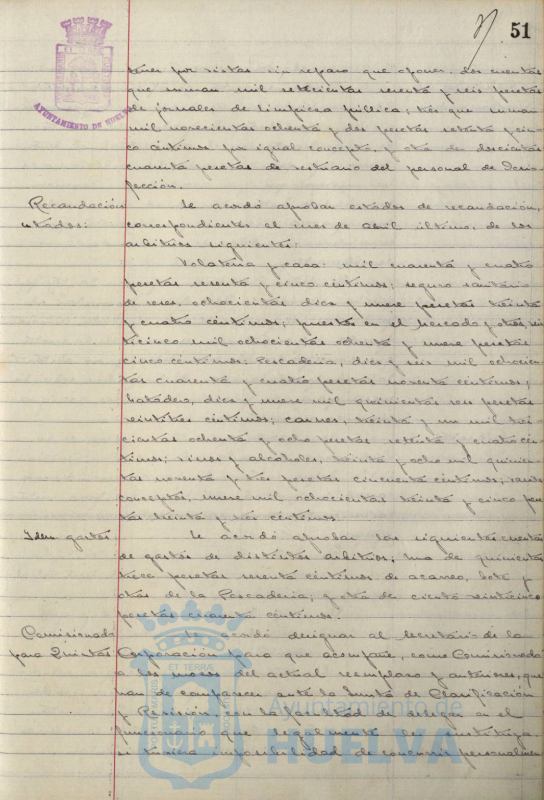 51
AYUNTAMIENTO DE HUELVA
tener por vistas sin reparo que oponer, dos cuentas
que suman mil setecientas sesenta y seis pesetas
de jornales de limpieza pública; tres que suman
mil novecientas ochenta y dos pesetas setenta y cin-
co céntimos por igual concepto, y otra de doscientas
cuarenta pesetas de vestuario del personal de Desin-
fección.
Recaudación
estados:
Se acordó aprobar estados de recaudación,
correspondientes al mes de abril último, de los
arbitrios siguientes:
Volatería y caza: mil cuarenta y cuatro
pesetas sesenta y cinco céntimos; seguro sanitario
de reses, ochocientas diez y nueve pesetas treinta
y cuatro céntimos; puestos en el Mercado y otros, vein-
ticinco mil ochocientas ochenta y nueve pesetas
cinco céntimos; Pescadería, diez y seis mil ochocien-
tas cuarenta y cuatro pesetas noventa céntimos;
Matadero, diez y nueve mil quinientas seis pesetas
veintitres céntimos; carnes, treinta y un mil tres-
cientas ochenta y ocho pesetas setenta y cuatro cén-
timos; vinos y alcoholes, treinta y ocho mil quinien-
tas noventa y tres pesetas cincuenta céntimos; varios
conceptos, nueve mil ochocientas treinta y cinco pese-
tas treinta y tres céntimos.
Idem gastos
Se acordó aprobar las siguientes cuentas
de gastos de distintos arbitrios; una de quinientas
trece pesetas sesenta céntimos de acarreo, bote y
otros de la Pescadería; y otra de ciento veinticinco
pesetas cuarenta céntimos.
Comisionado
para Quintas
Se acordó designar al Secretario de la
Corporación para que acompañe, como Comisionado
a los mozos del actual reemplazo y anteriores, que
han de comparecer ante la Junta de Clasificación
y Revisión, con la facultad de delegar en el
funcionario que legalmente le sustituya
si tuviera imposibilidad de concurrir personalmen
ET TERRAE
Ayuntamiento de
HUELVA